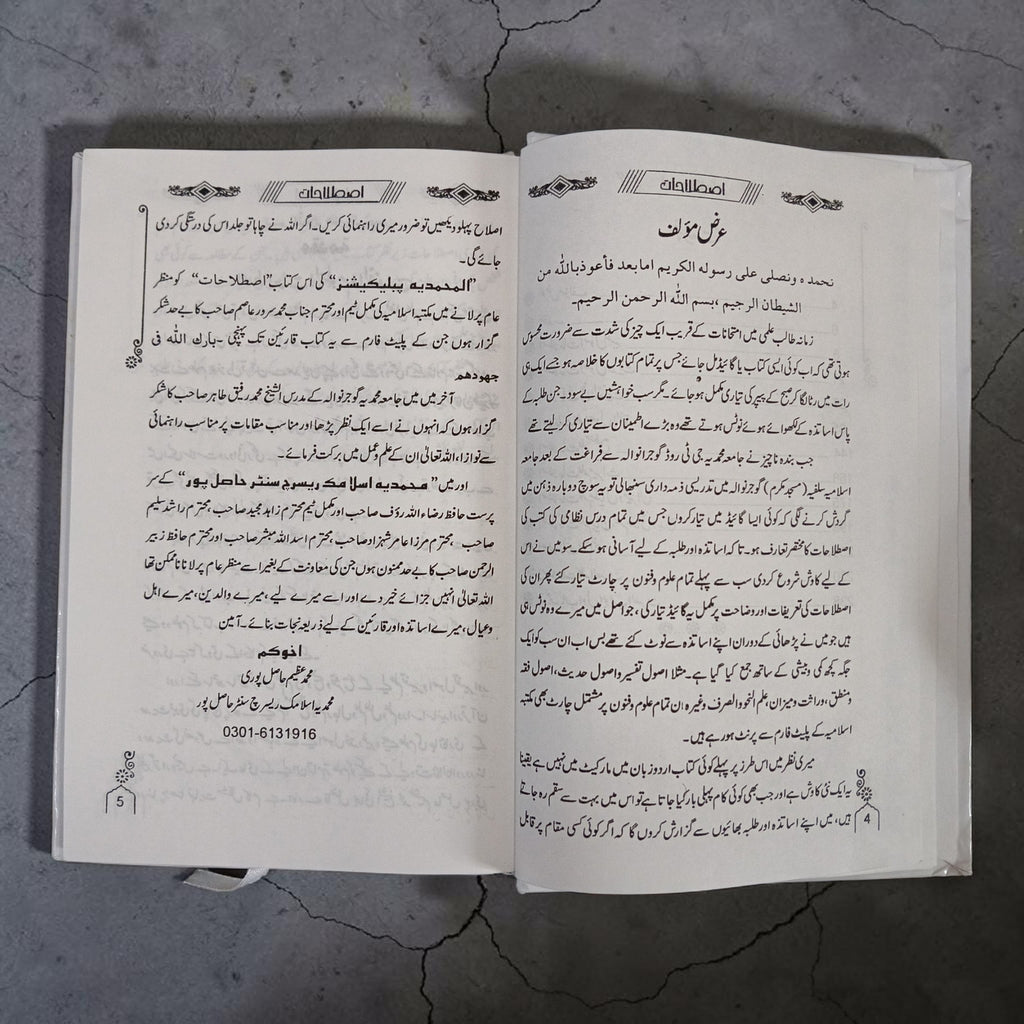 اصطلاحات
عرض مؤلف
نحمده ونصلی علی رسوله الکریم امابعد فأعوذبالله من
الشیطان الرجیم ،بسم الله الرحمن الرحیم۔
زمانہ طالب علمی میں امتحانات کے قریب ایک چیز کی شدت سے ضرورت محسوس
ہوتی تھی کہ اب کوئی ایسی کتاب یا گائیڈ مل جائے جس پر تمام کتابوں کا خلاصہ ہو جسے ایک ہی
رات میں رٹا لگا کر صبح کے پیپر کی تیاری مکمل ہو جائے۔ مگر سب خواہشیں بے سود۔ جن طلبہ کے
پاس اساتذہ کے لکھوائے ہوئے نوٹس ہوتے تھے وہ بڑے اطمینان سے تیاری کر لیتے تھے
جب بندہ ناچیز نے جامعہ محمدیہ جی ٹی روڈ گوجرانوالہ سے فراغت کے بعد جامعہ
اسلامیہ سلفیہ (مسجد مکرم) گوجرنوالہ میں تدریسی ذمہ داری سنبھالی تو یہ سوچ دوبارہ ذہن میں
گردش کرنے لگی کہ کوئی ایسا گائیڈ میں تیار کروں جس میں تمام درس نظامی کی کتب کی
اصطلاحات کا مختصر تعارف ہو۔ تاکہ اساتذہ اور طلبہ کے لیے آسانی ہو سکے۔ سو میں نے اس
کے لیے کاوش شروع کردی سب سے پہلے تمام علوم وفنون پر چارٹ تیار کئے پھر ان کی
اصطلاحات کی تعریفات اور وضاحت پر مکمل یہ گائیڈ تیار کی ، جو اصل میں میرے وہ نوٹس ہی
ہیں جو میں نے پڑھائی کے دوران اپنے اساتذہ سے نوٹ کئے تھے بس اب ان سب کو ایک
جگہ کچھ کمی وبیشی کے ساتھ جمع کیا گیا ہے۔ مثلا اصول تفسیر واصول حدیث، اصول فقہ
ومنطق، وراثت ومیزان، علم النحو والصرف وغیرہ، ان تمام علوم وفنون پر مشتمل چارٹ بھی مکتبہ
اسلامیہ کے پلیٹ فارم سے پرنٹ ہو رہے ہیں۔
میری نظر میں اس طرز پر پہلے کوئی کتاب اردو زبان میں مارکیٹ میں نہیں ہے یقینا
یہ ایک نئی کاوش ہے اور جب بھی کوئی کام پہلی بار کیا جاتا ہے تو اس میں بہت سے سقم رہ جاتے
ہیں، میں اپنے اساتذہ اور طلبہ بھائیوں سے گزارش کروں گا کہ اگر کوئی کسی مقام پر قابل
4
اصطلاحات
اصلاح پہلو دیکھیں تو ضرور میری راہنمائی کریں۔ اگر اللہ نے چاہا تو جلد اس کی درستگی کر دی
جائے گی۔
"المحمدیہ پبلیکیشنز" کی اس کتاب "اصطلاحات" کو منظر
عام پر لانے میں مکتبہ اسلامیہ کی مکمل ٹیم اور محترم جناب محمد سرور عاصم صاحب کا بے حد شکر
گزار ہوں جن کے پلیٹ فارم سے یہ کتاب قارئین تک پہنچی ۔بارك الله فی
جهودهم
آخر میں میں جامعہ محمدیہ گوجرنوالہ کے مدرس الشیخ محمد رفیق طاہر صاحب کا شکر
گزار ہوں کہ انہوں نے اسے ایک نظر پڑھا اور مناسب مقامات پر مناسب راہنمائی
سے نوازا، اللہ تعالیٰ ان کے علم وعمل میں برکت فرمائے۔
اور میں "محمدیہ اسلامک ریسرچ سنٹر حاصل پور" کے سر
پرست حافظ رضاء اللہ رؤف صاحب اور مکمل ٹیم محترم زاہد مجید صاحب، محترم راشد سلیم
صاحب ۔ محترم مرزا عامر شہزاد صاحب، محترم اسد اللہ مبشر صاحب اور محترم حافظ زبیر
الرحمن صاحب کا بے حد ممنون ہوں جن کی معاونت کے بغیر اسے منظر عام پر لانا ناممکن تھا
اللہ تعالیٰ انہیں جزائے خیر دے اور اسے میرے لیے ،میرے والدین، میرے اہل
وعیال، میرے اساتذہ اور قارئین کے لیے ذریعہ نجات بنائے۔ آمین
اخوکم
محمد عظیم حاصل پوری
محمدیہ اسلامک ریسرچ سنٹر حاصل پور
0301-6131916
5